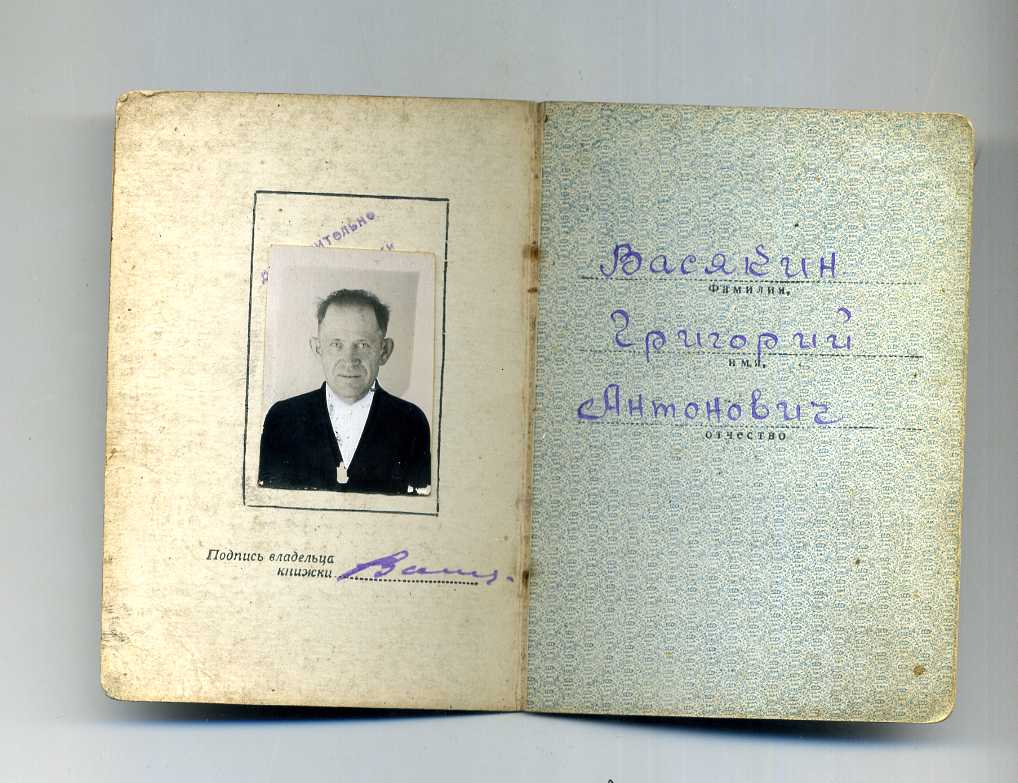 Подпись владельца
книжки
Васякин
фамилия,
Григорий
имя,
Антонович
отчество